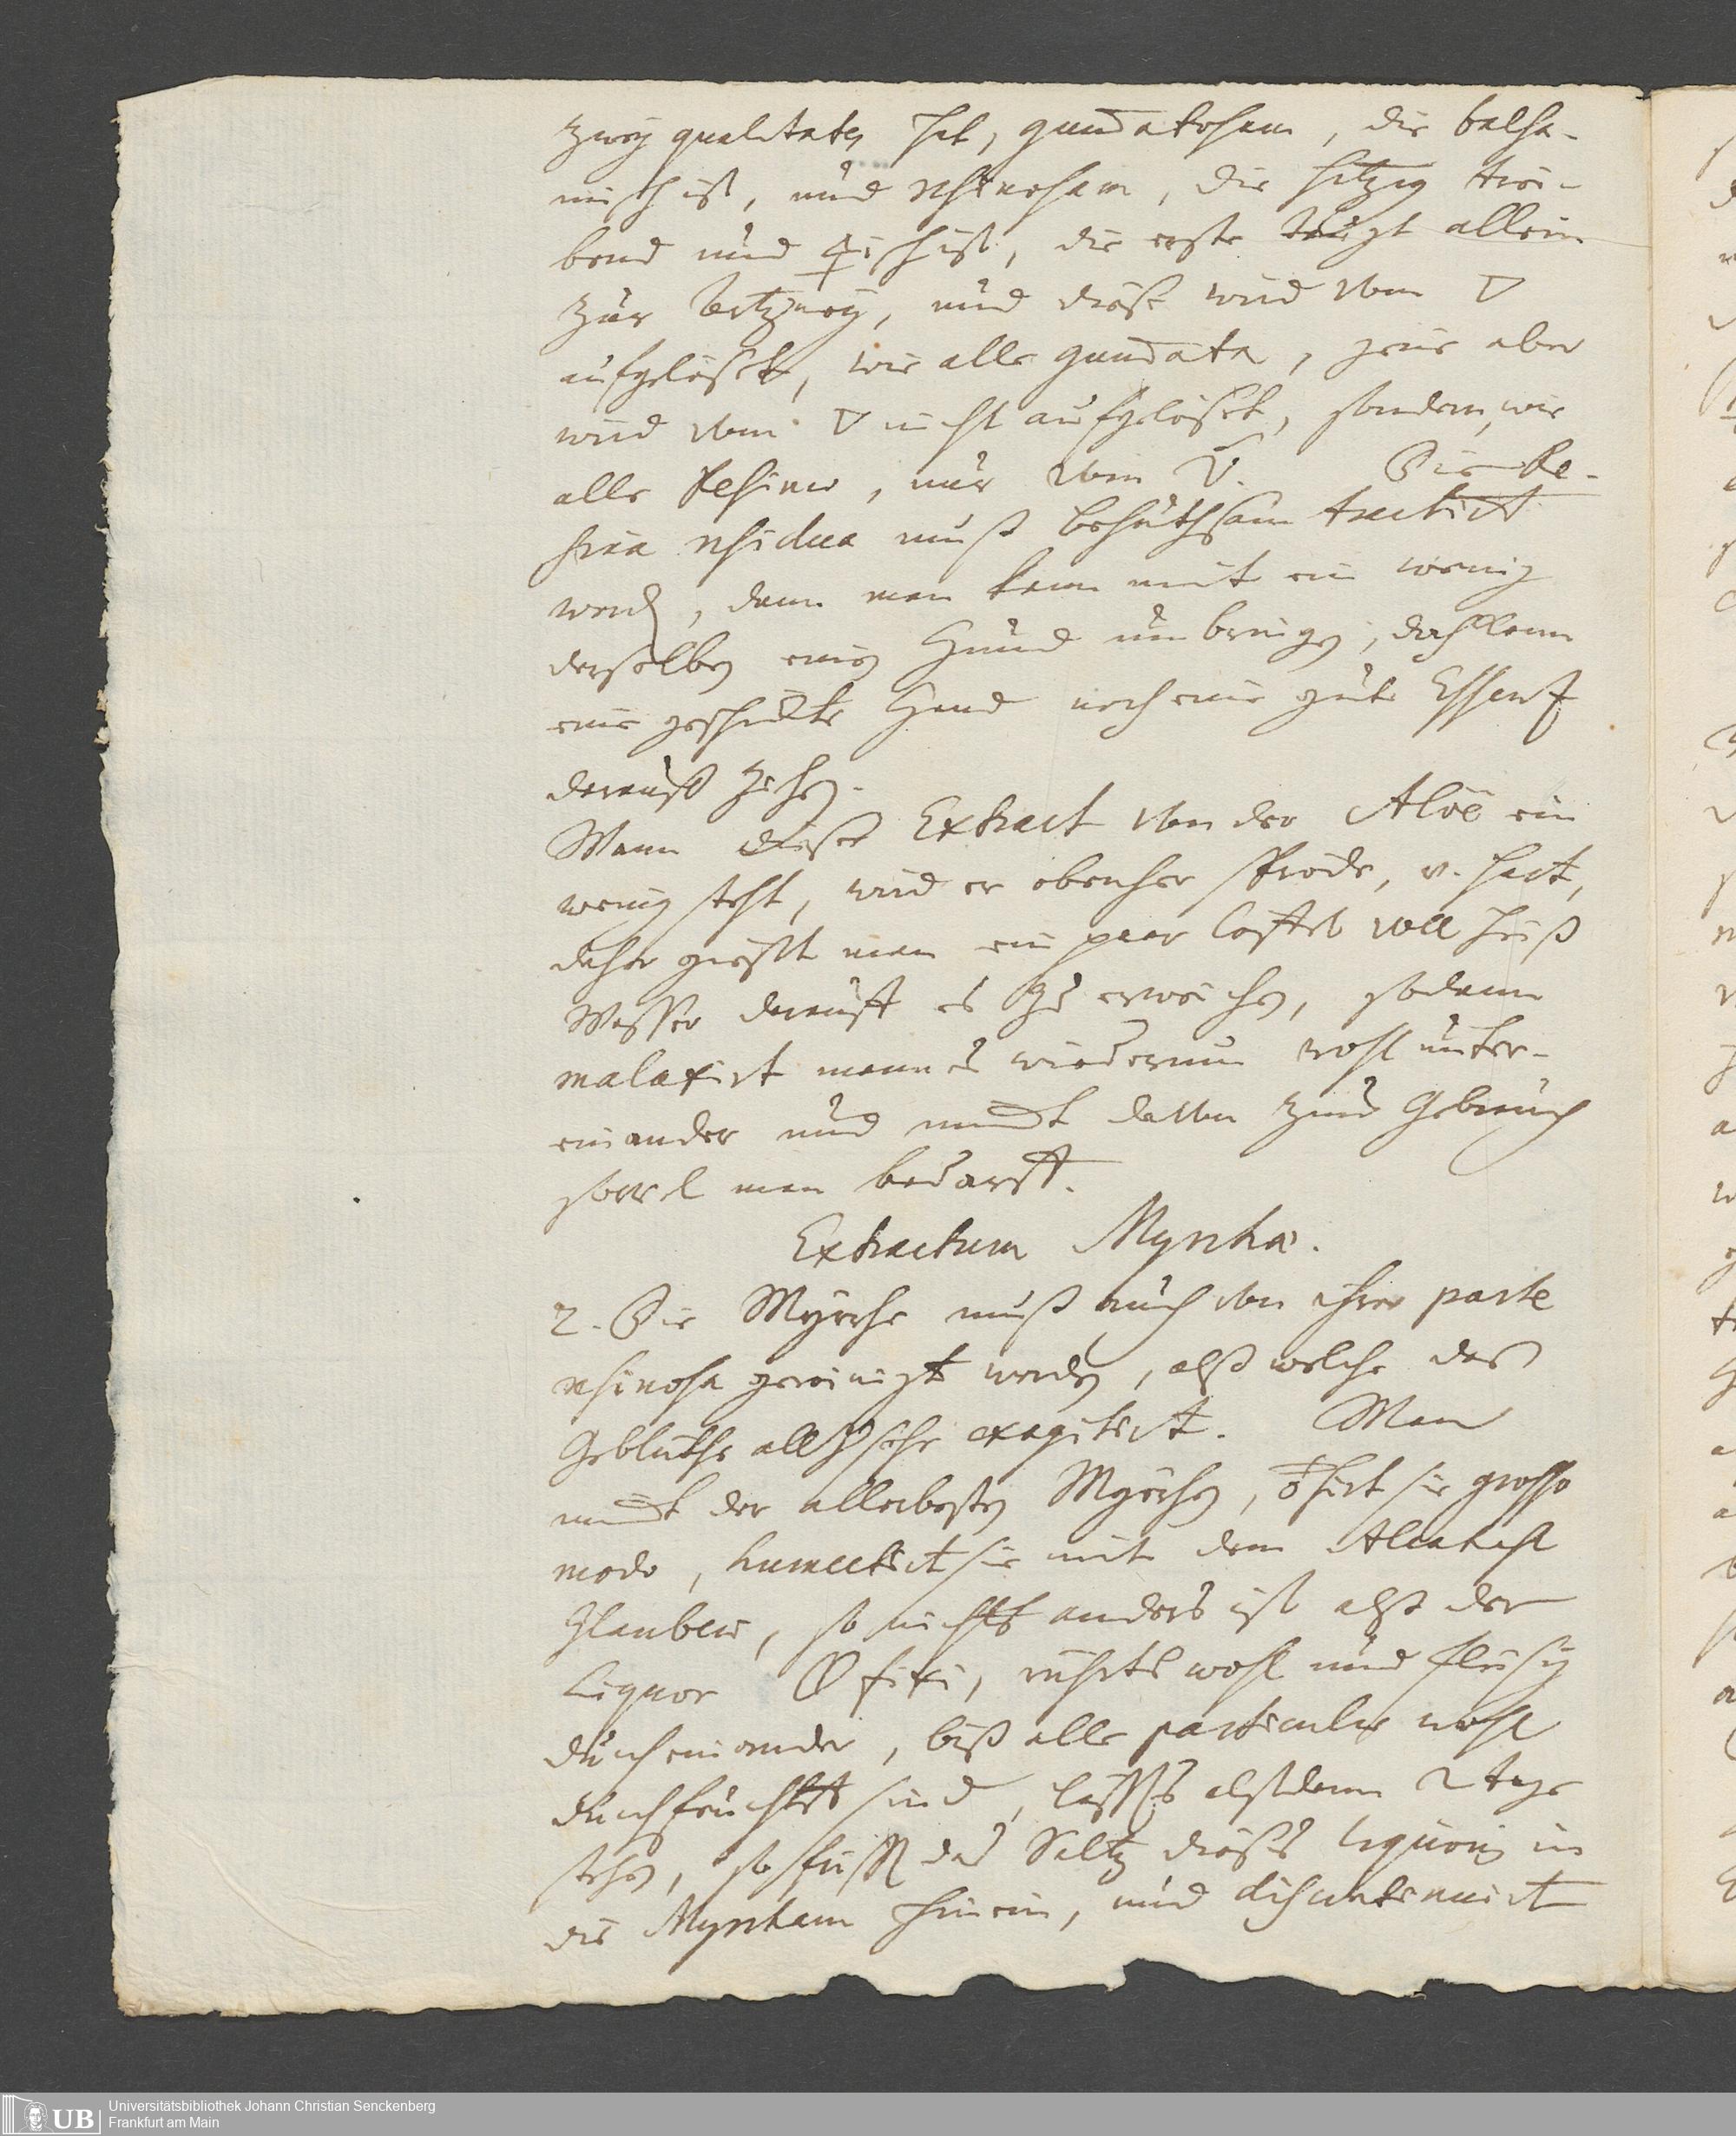 zwey qualitates hat, gummatosam, die balsa-
misch ist, und resinosam, die hitzig trei-
bend und 🜍isch ist, die erste taugt allein
zur Artzney, und diese wird vom 🜄
aufgelöset, wie alle gummata, jene aber
wird vom 🜄 nicht aufgelöset, sondern, wie
alle Resinae, nur vom V. Die Re-
sina residua muß behuthsam tractirt
werden, denn man kann mit ein wenig
derselben einen Hund umbringen, doch kann
eine geschickte Hand noch eine gute Essentz
darauß ziehen.
Wann dieser Extract von der Aloë ein
wenig steht, wird er obenher spröde, u. hart,
daher gießt man ein paar Löffel voll heiß
Wasser darauff es zu erweichen, sodann
malaxirt mann es wiederumb wohl unter-
einander und nimmt davon zum Gebrauch
soviel man bedarff.
Extractum Myrrhae.
2. Die Myrrhe muß auch von ihrer parte
resinosa gereinigt werden, alß welche das
Geblüthe allzusehr exagitirt. Man
nimmt der allerbesten Myrrhen, 🜿hirt sie grosso
modo, humectirt sie mit dem Alcahest
Glauberi, so nichts anders ist alß der
Liquor 🜕 fixi, rührts wohl und fleisig
durcheinander, biß alle particulae wohl
durchfeuchtet sind, läßts alßdann 2 tage
stehen, so frißt das Saltz dieses liquoris in
die Myrrham hinein, und discontinuirt
Universitätsbibliothek Johann Christian Senckenberg
Frankfurt am Main
UB